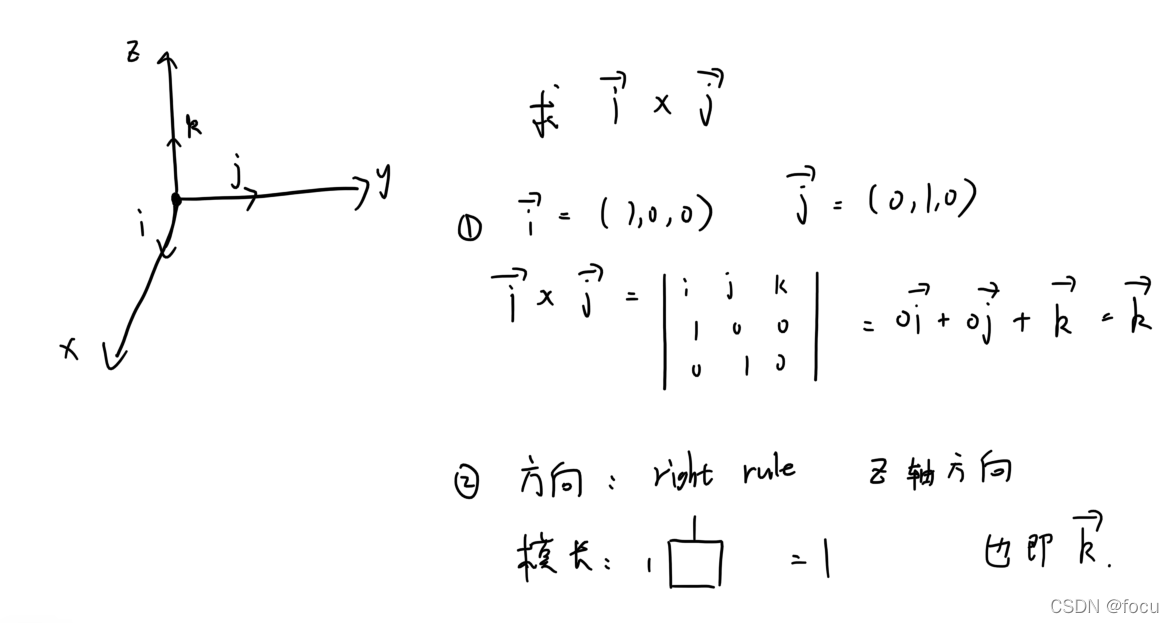 z
k
j
y
i
x
求 i × j
① i = (1,0,0) j = (0,1,0)
i × j = | i j k | = 0i + 0j + k = k
1 0 0
0 1 0
② 方向: right rule z轴方向
模长: 1 1 = 1 也即 k.
CSDN @focu